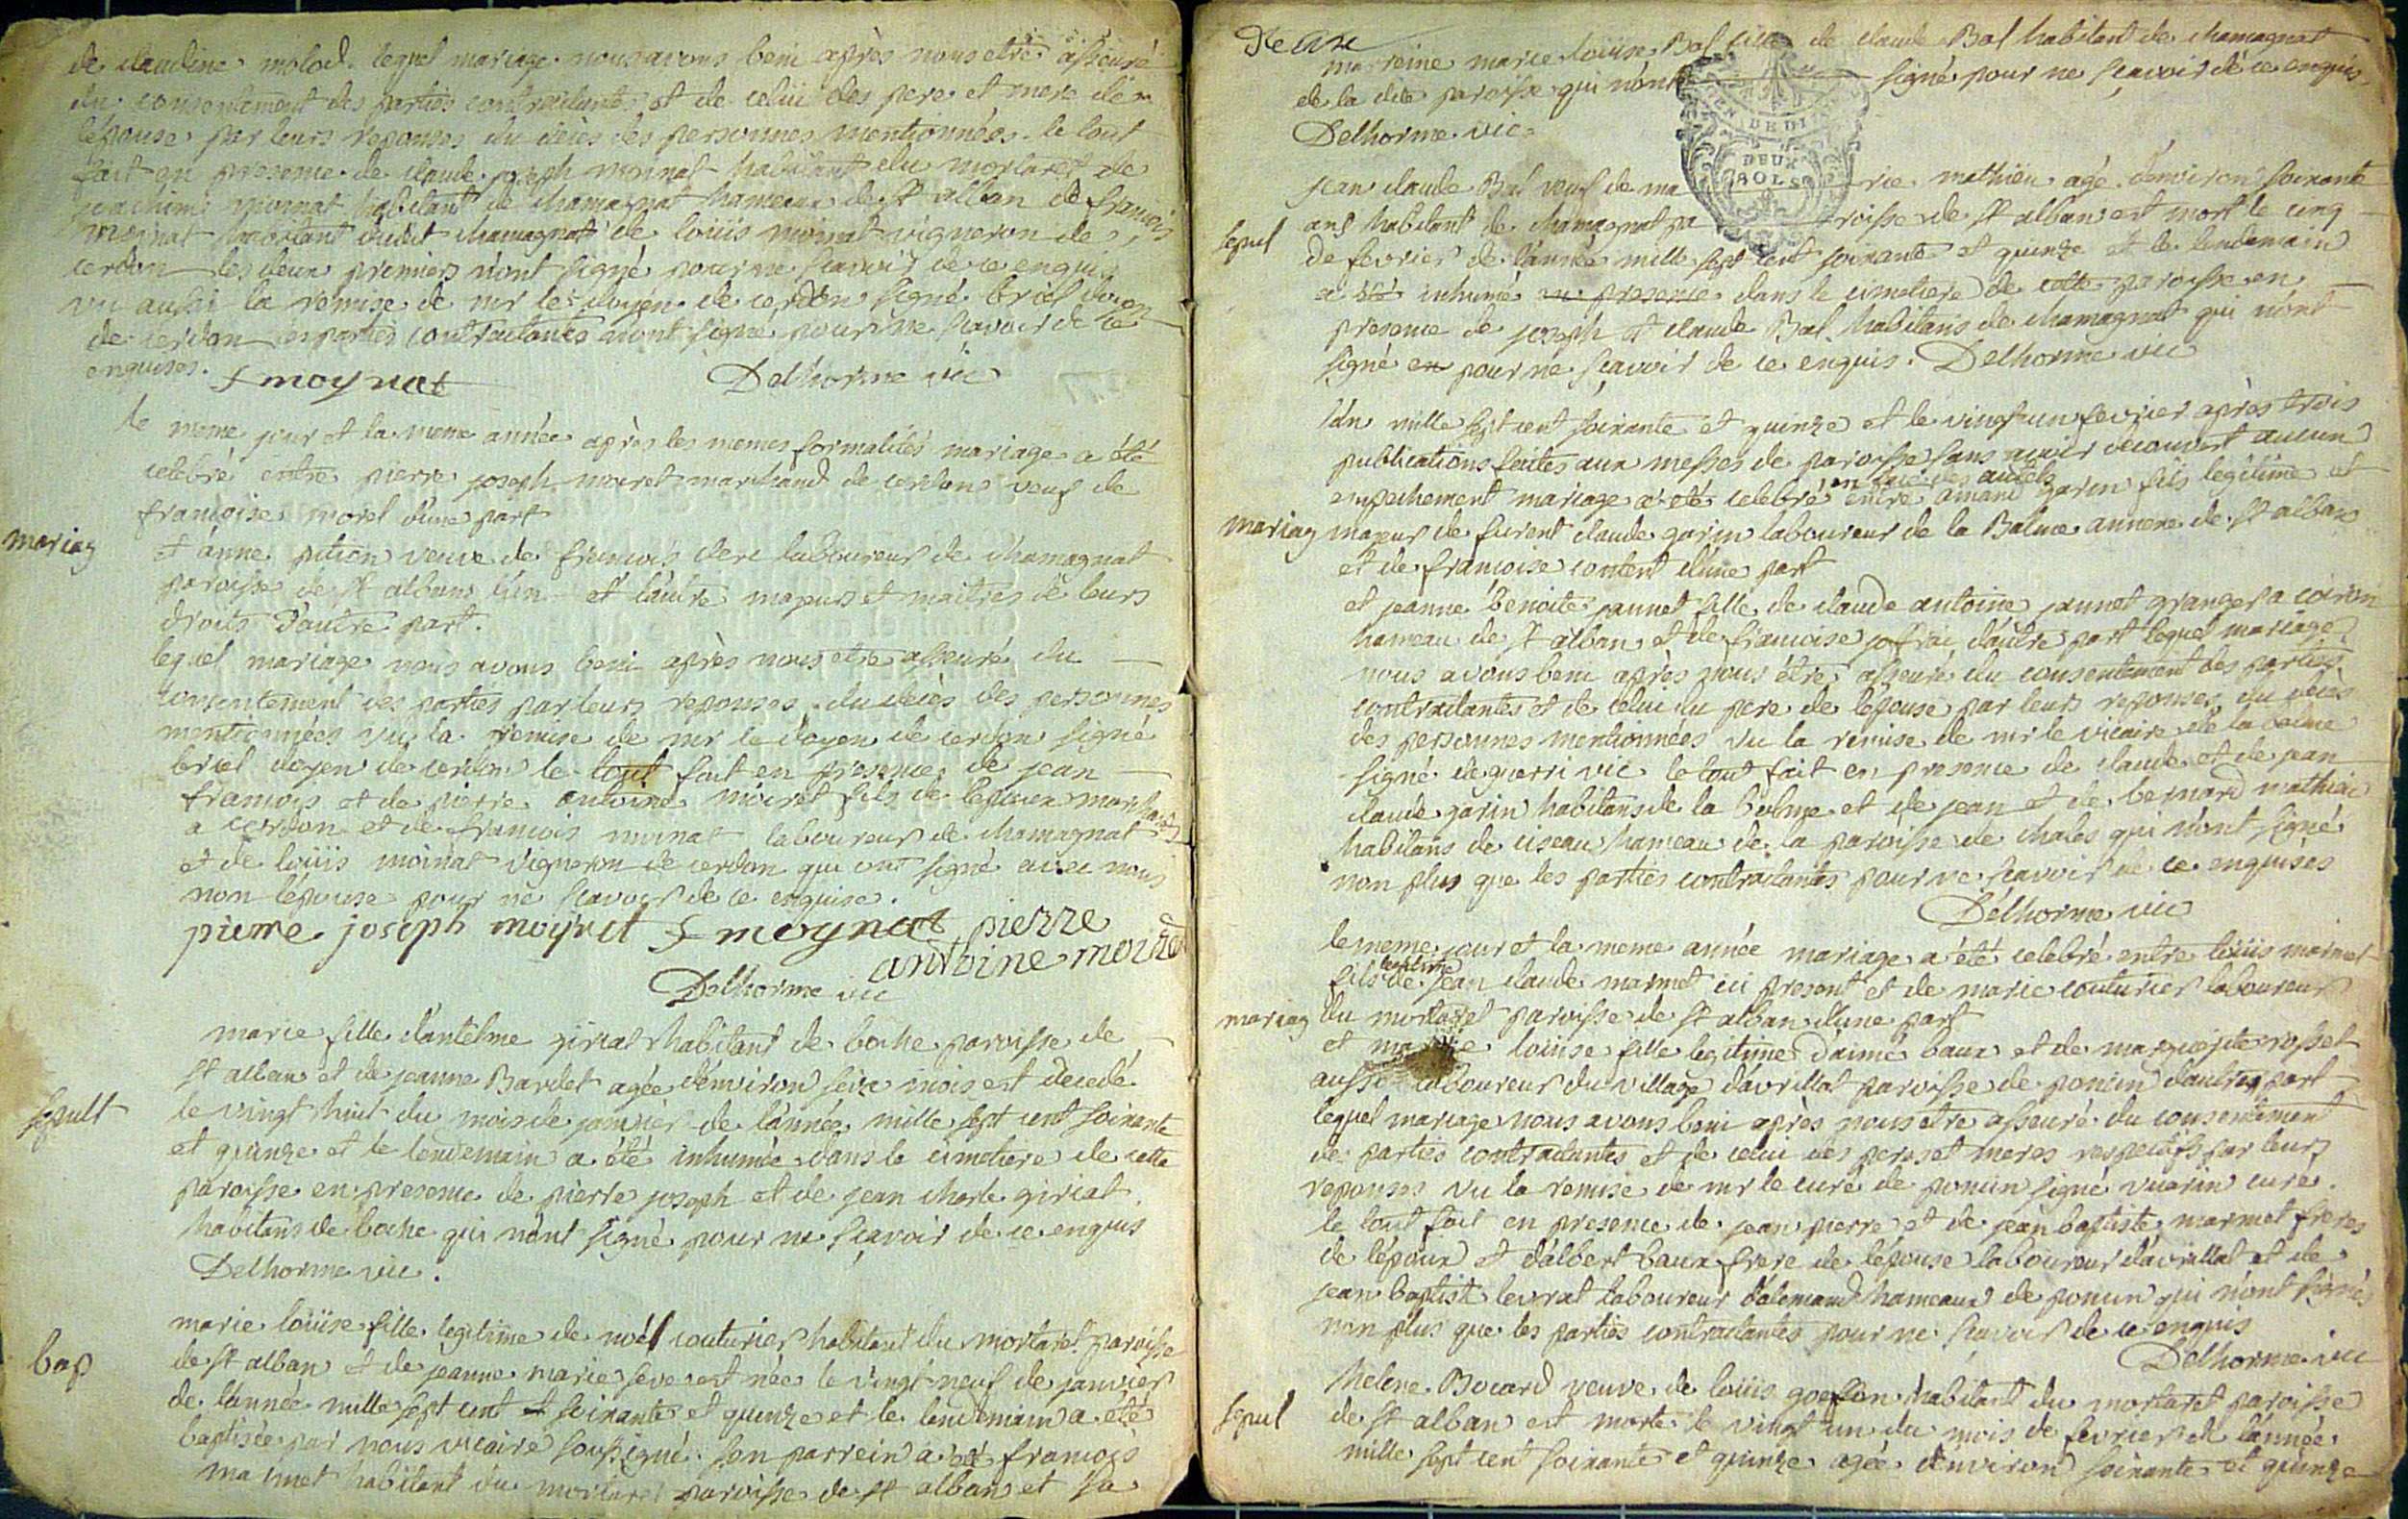 de claudine molod. lequel mariage nous avons beni après nous etre assuré
du consentement des parties contractantes et de celui des pere et mere de
l'epouse par leurs reponses du décès des personnes mentionnées. le tout
fait en presence de claude joseph moinat habitant du mortaret de
joachim moinat habitant de chamagnat hameau de st alban de francois
moinat habitant dudit chamagnat de loüis moinat vigneron de
cerdon les deux premiers n'ont signé pour ne scavoir de ce enquis
vu aussi la remise de mr le doyen de cerdon signé briel doyen
de cerdon les parties contractantes n'ont signé pour ne scavoir de ce
enquises.
f moynat Delhorme vic
le meme jour et la meme année après les memes formalités mariage a été
celebré entre pierre joseph moiret marchand de cerdon veuf de
francoise morel d'une part
mariag
et anne pition veuve de francois clerc laboureur de chamagnat
paroisse de st alban l'un et l'autre majeurs et maitres de leurs
droits d'autre part.
lequel mariage nous avons beni après nous etre asseuré du
consentement des parties par leurs reponses du décès des personnes
mentionnées vu la remise de mr le doyen de cerdon signé
briel doyen de cerdon le tout fait en presence de jean
francois et de pierre antoine moiret fils de l'epoux marchands
a cerdon et de francois moinat laboureur de chamagnat
et de loüis moinat vigneron de cerdon qui ont signé avec nous
non l'epouse pour ne scavoir de ce enquise.
pierre joseph moyret f moynat pierre
antoine moiret
Delhorme vic
marie fille d'antelme giriat habitant de boche paroisse de
st alban et de jeanne Bardet agée d'environ seize mois est decedé
sepult
le vingt huit du mois de janvier de l'année mille sept cent soixante
et quinze et le lendemain a été inhumée dans le cimetiere de cette
paroisse en presence de pierre joseph et de jean charle giriat
habitans de boche qui n'ont signé pour ne scavoir de ce enquis
Delhorme vic.
marie loüise fille legitime de noël couturier habitant du mortaret paroisse
bap
de st alban et de jeanne marie seve est née le vingt neuf de janvier
de l'année mille sept cent soixante et quinze et le lendemain a été
baptisée par nous vicaire soussigné. son parrein a été francois
marmet habitant du mortaret paroisse de st alban et sa
marreine marie loüise Bal fille de claude Bal habitant de chamagnat
de la dite paroisse qui n'ont signé pour ne scavoir de ce enquis
Delhorme vic
DEUX
SOLS
jean claude Bal veuf de marie mathieu agé d'environ soixante
sepul
ans habitant de chamagnat paroisse de st alban est mort le cinq
de fevrier de l'année mille sept cent soixante et quinze et le lendemain
a été inhumé en presence dans le cimetiere de cette paroisse en
presence de joseph et claude Bal habitans de chamagnat qui n'ont
signé en pour ne scavoir de ce enquis. Delhorme vic
l'an mille sept cent soixante et quinze et le vingt un fevrier après trois
publications faites aux messes de paroisse sans avoir decouvert aucun
empechement mariage a été celebré entre amand garin fils legitime et
mariag
majeur de furent claude garin laboureur de la Balme annexe de st alban
et de francoise content d'une part
et jeanne benoite jannet fille de claude antoine jannet granger a coiron
hameau de st alban et de francoise jofrai d'autre part lequel mariage
nous avons beni après nous être asseuré du consentement des parties
contractantes et de celui du pere de l'epouse par leurs reponses du décès
des personnes mentionnées vu la remise de mr le vicaire de la balme
signé deguerri vic le tout fait en presence de claude et de jean
claude garin habitans de la balme et de jean et de bernard mathieu
habitans de ciseau hameau de la paroisse de chales qui n'ont signé
non plus que les parties contractantes pour ne scavoir de ce enquises
Delhorme vic
le meme jour et la meme année mariage a été celebré entre loüis marmet
fils legitime de jean claude marmet ici present et de marie couturier laboureur
mariag
du mortaret paroisse de st alban d'une part
et marie louise fille legitime d'aimé baux et de marguerite rosset
aussi laboureur du village d'avrillat paroisse de poncin d'autre part
lequel mariage nous avons beni après nous etre asseuré du consentement
de parties contractantes et de celui des peres et meres respectifs par leurs
reponses vu la remise de mr le curé de poncin signé vuarin curé.
le tout fait en presence de jean pierre et de jean baptiste marmet freres
de l'epoux et d'albert baux frere de l'epouse laboureur d'avrillat et de
jean baptiste levrat laboureur d'alemand hameaux de poncin qui n'ont signés
non plus que les parties contractantes pour ne scavoir de ce enquis
Delhorme vic
helene Bocard veuve de loüis habitant du mortaret paroisse
sepul
de st alban est morte le vingt un du mois de fevrier de l'année
mille sept cent soixante et quinze agée d'environ soixante et quinze